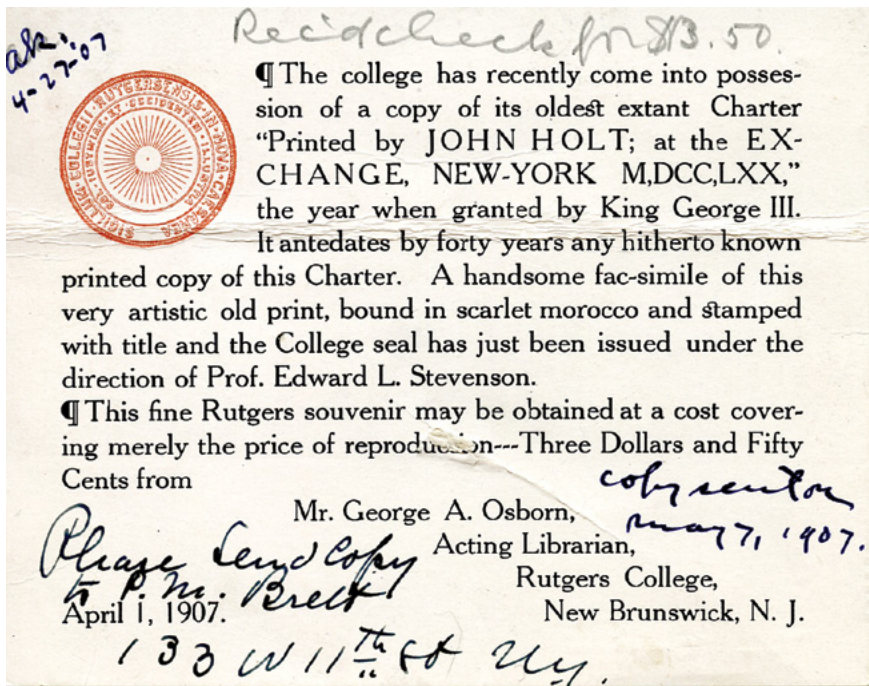 Rec'd check for $3.50.
4-27-07
SIGILLUM · COLLEGII · RUTGERSENSIS · IN · NOVA · CAESAREA
SOL · IUSTITIAE · ET · OCCIDENTEM · ILLUSTRA
¶ The college has recently come into posses-
sion of a copy of its oldest extant Charter
“Printed by JOHN HOLT; at the EX-
CHANGE, NEW-YORK M,DCC,LXX,”
the year when granted by King George III.
It antedates by forty years any hitherto known
printed copy of this Charter. A handsome fac-simile of this
very artistic old print, bound in scarlet morocco and stamped
with title and the College seal has just been issued under the
direction of Prof. Edward L. Stevenson.
¶ This fine Rutgers souvenir may be obtained at a cost cover-
ing merely the price of reproduction---Three Dollars and Fifty
Cents from
copy sent on
May 7, 1907.
Mr. George A. Osborn,
Acting Librarian,
Rutgers College,
New Brunswick, N. J.
Please Send Copy
to P. M. Brett
April 1, 1907.
133 W 11th St NY.